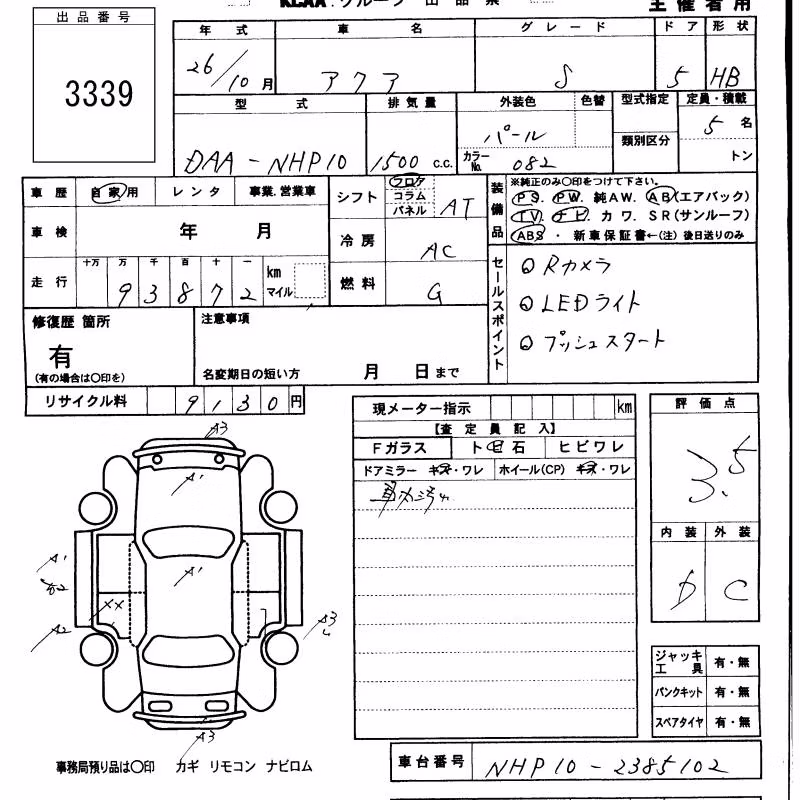 KCAA グループ 出品票 主催者用
出品番号
3339
年式 車名 グレード ドア 形状
26/10月 アクア S 5 HB
型式 排気量 外装色 色替 型式指定 定員・積載
DAA-NHP10 1500c.c. パール 類別区分 5名
カラーNo. 082 トン
車歴 自家用 レンタ 事業.営業車
車検 年 月
走行 十万 万 千 百 十 一 km マイル
93872
シフト フロア コラム パネル AT
冷房 AC
燃料 G
装備品
※純正のみ〇印をつけて下さい。
PS. PW. 純AW. AB(エアバック)
TV. ナビ. カワ. SR(サンルーフ)
ABS・新車保証書←(注)後日送りのみ
セールスポイント
Rカメラ
LEDライト
プッシュスタート
修復歴 箇所
有
(有の場合は〇印を)
注意事項
名変期日の短い方 月 日まで
リサイクル料 9130円
現メーター指示 km
【査定員記入】
Fガラス ト石 ヒビワレ
ドアミラー キズ・ワレ ホイール(CP) キズ・ワレ
評価点
3.5
内装 外装
D C
A3
A1
A1
A1
A2
XX
A3
A3
ジャッキ工具 有・無
パンクキット 有・無
スペアタイヤ 有・無
事務局預り品は〇印 カギ リモコン ナビロム
車台番号 NHP10-2385102